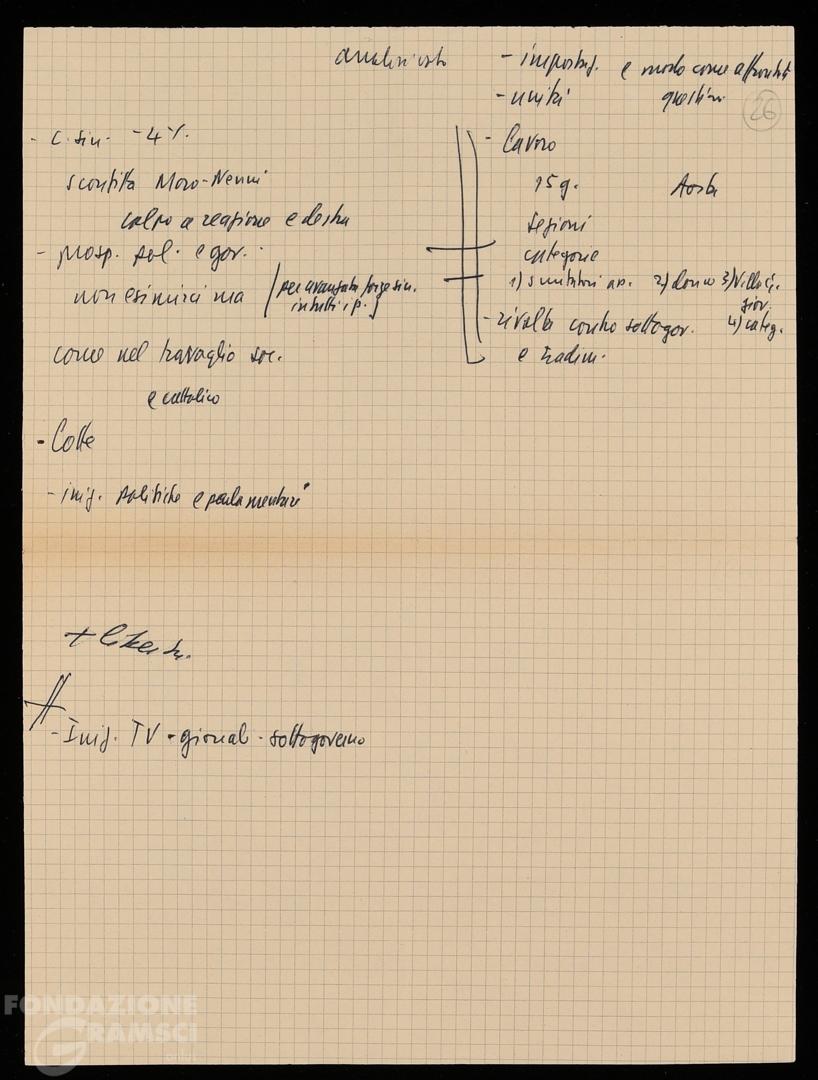 analisi voto
- c. sin. - 4%.
sconfitta Moro-Nenni
colpo a reazione e destra
- prosp. pol. e gov.
non esimirci ma / per avanzata forze sin. in tutti i p. /
come nel travaglio soc.
e cattolico
- Colle
- iniz. politiche e parlamentari
+
- Iniz. TV - giornali - sottogoverno
- impostaz. e modo come affrontati
- unità questioni
26
- Lavoro
15 g. Aosta
sezioni
categorie
1) 2) donne 3)
giov.
4) categ.
- rivolta contro sottogov.
e tradim.
FONDAZIONE
GRAMSCI
onlus